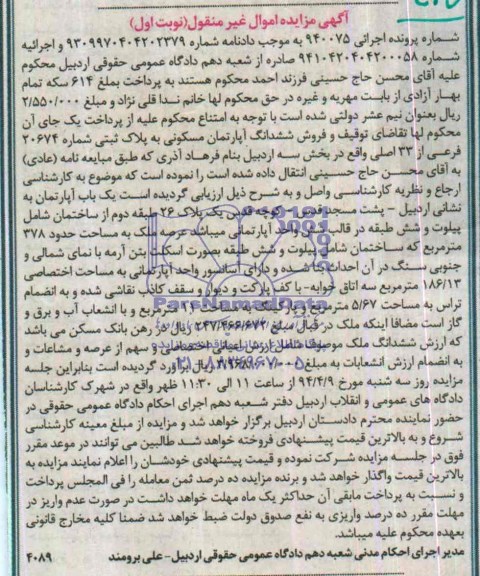 آگهی مزایده اموال غیر منقول(نوبت اول)
شماره پرونده اجرائی ۹۴۰۰۷۵ به موجب دادنامه شماره ۹۳۰۹۹۷۰۴۰۴۲۰۲۳۷۹ و اجرائیه
شماره ۹۴۱۰۴۲۰۴۰۴۲۰۰۰۵۸ صادره از شعبه دهم دادگاه عمومی حقوقی اردبیل محکوم
علیه آقای محسن حاج حسینی فرزند احمد محکوم هستند به پرداخت بمبلغ ۶۱۴ سکه تمام
بهار آزادی از بابت مهریه و غیره در حق محکوم لها خانم ندا قلی نژاد و مبلغ ۲/۵۵۰/۰۰۰
ریال بعنوان نیم عشر دولتی شده است با توجه به امتناع محکوم علیه از پرداخت یک جای آن
محکوم لها تقاضای توقیف و فروش ششدانگ آپارتمان مسکونی به پلاک ثبتی شماره ۲۰۶۷۴
فرعی از ۳۳ اصلی واقع در بخش سه اردبیل بنام فرهاد آذری که طبق مبایعه نامه (عادی)
به آقای محسن حاج حسینی انتقال داده شده است را نموده است که موضوع به کارشناسی
ارجاع و نظریه کارشناسی واصل و به شرح ذیل ارزیابی گردیده است یک باب آپارتمان به
نشانی اردبیل - پشت مسجد قدس - کوچه قدس یک پلاک ۲۶ طبقه دوم از ساختمان شامل
پیلوت و شش طبقه در قالب شش واحد آپارتمانی میباشد عرصه ملک به مساحت حدود ۳۷۸
مترمربع که ساختمان شامل پیلوت و شش طبقه بصورت اسکلت بتن آرمه با نمای شمالی و
جنوبی سنگ در آن احداث شده و دارای آسانسور واحد آپارتمانی به مساحت اختصاصی
۱۸۶/۱۳ مترمربع سه اتاق خوابه- با کف پارکت و دیوار و سقف کاذب نقاشی شده و به انضمام
تراس به مساحت ۵/۶۷ مترمربع و پارکینگ به مساحت مترمربع و با انشعاب آب و برق و
گاز است مضافا اینکه ملک در قبال مبلغ ریال در رهن بانک مسکن می باشد
که ارزش ششدانگ ملک موصوف شامل ارزش اعیانی اختصاصی و سهم از عرصه و مشاعات و
به انضمام ارزش انشعابات به مبلغ ریال برآورد گردیده است بنابراین جلسه
مزایده روز سه شنبه مورخ ۹۴/۴/۹ از ساعت ۱۱ الی ۱۱:۳۰ ظهر واقع در شهرک کارشناسان
دادگاه های عمومی و انقلاب اردبیل دفتر شعبه دهم اجرای احکام دادگاه عمومی حقوقی در
حضور نماینده محترم دادستان اردبیل برگزار خواهد شد و مزایده از مبلغ معینه کارشناسی
شروع و به بالاترین قیمت پیشنهادی فروخته خواهد شد طالبین می توانند در موعد مقرر
فوق در جلسه مزایده شرکت نموده و قیمت پیشنهادی خودشان را اعلام نمایند مزایده به
بالاترین قیمت واگذار خواهد شد و برنده مزایده ده درصد ثمن معامله را فی المجلس پرداخت
و نسبت به پرداخت مابقی آن حداکثر یک ماه مهلت خواهد داشت در صورت عدم واریز در
مهلت مقرر ده درصد واریزی به نفع صدوق دولت ضبط خواهد شد ضمنا کلیه مخارج قانونی
بعهده محکوم علیه میباشد.
مدیر اجرای احکام مدنی شعبه دهم دادگاه عمومی حقوقی اردبیل- علی برومند ۴۰۸۹
ParsNamadData